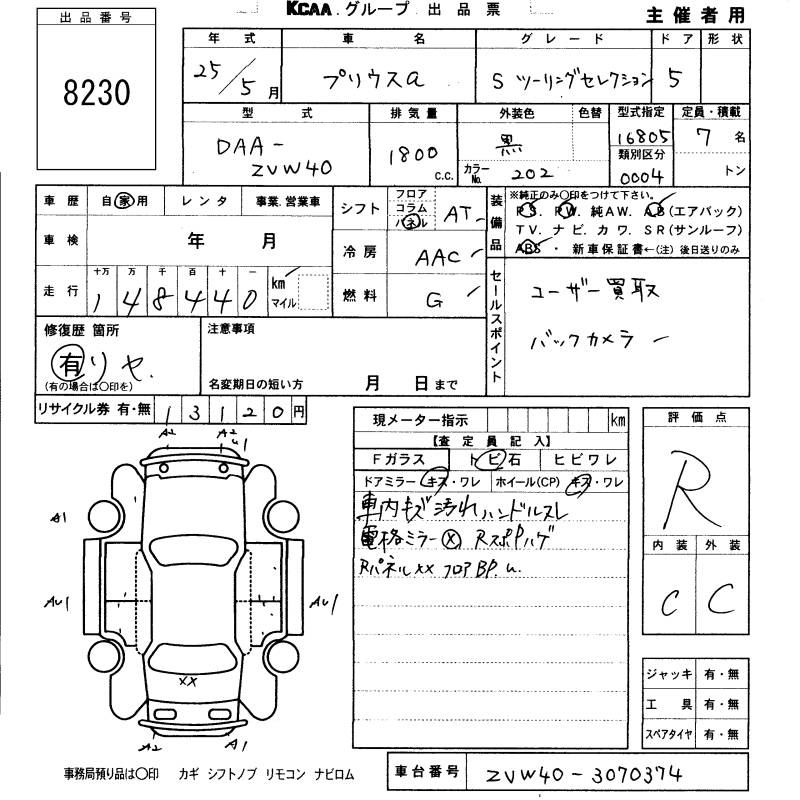 KCAA グループ 出品票
主催者用
出品番号
8230
年式 車名 グレード ドア 形状
25/5月 プリウスα S ツーリングセレクション 5
型式 排気量 外装色 色替 型式指定 定員・積載
DAA-ZVW40 1800 c.c. 黒 カラーNo. 202 16805 7名
類別区分 0004 トン
車歴 自家用 レンタ 事業.営業車
シフト フロア コラム パネル AT
装備品 ※純正のみ〇印をつけて下さい。
PS. PW. 純AW. AB(エアバック)
TV. ナビ. カワ. SR(サンルーフ)
ABS ・ 新車保証書←(注) 後日送りのみ
車検 年 月
冷房 AAC
走行 十万 万 千 百 十 一 km マイル
148440
燃料 G
セールスポイント
ユーザー買取
バックカメラ
修復歴 箇所
有 リヤ.
(有の場合は〇印を)
注意事項
名変期日の短い方 月 日まで
リサイクル券 有・無 13120円
現メーター指示 km
【査定員記入】
Fガラス トビ石 ヒビワレ
ドアミラー キズ・ワレ ホイール(CP) キズ・ワレ
車内キズ 汚れ ハンドルスレ
電格ミラー Ⓧ Rスポハゲ
Rパネルxx フロアBP. u.
評価点
R
内装 外装
C C
A2 A2 u1
A1
Au1 Au1
XX
A2 A1
ジャッキ 有・無
工具 有・無
スペアタイヤ 有・無
事務局預り品は〇印 カギ シフトノブ リモコン ナビロム
車台番号 ZVW40-3070374